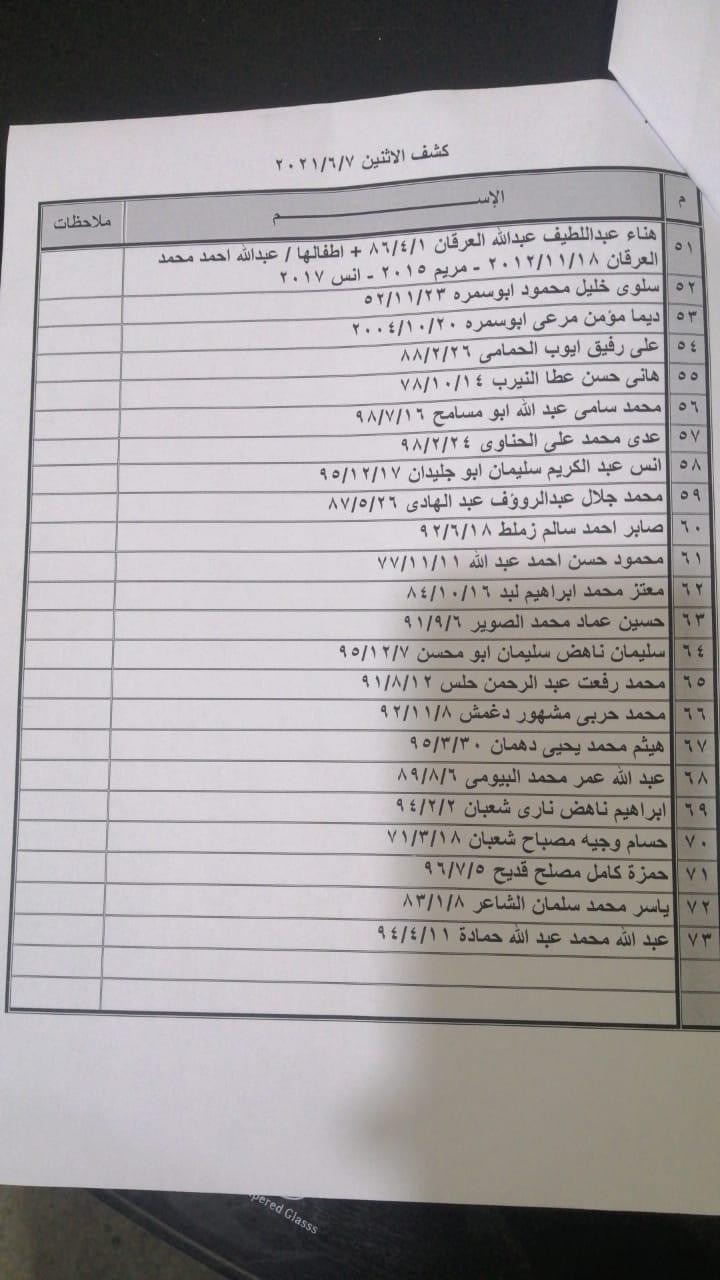 كشف الاثنين ٢٠٢١/٦/٧
م الإســـــم ملاحظات
٥١ هناء عبداللطيف عبدالله العرقان ٨٦/٤/١ + اطفالها / عبدالله احمد محمد
العرقان ٢٠١٢/١١/١٨ - مريم ٢٠١٥ - انس ٢٠١٧
٥٢ سلوى خليل محمود ابوسمره ٥٢/١١/٢٣
٥٣ ديما مؤمن مرعى ابوسمره ٢٠٠٤/١٠/٢٠
٥٤ على رفيق ايوب الحمامى ٨٨/٢/٢٦
٥٥ هانى حسن عطا النيرب ٧٨/١٠/١٤
٥٦ محمد سامى عبد الله ابو مسامح ٩٨/٧/١٦
٥٧ عدى محمد على الحناوى ٩٨/٢/٢٤
٥٨ انس عبد الكريم سليمان ابو جليدان ٩٥/١٢/١٧
٥٩ محمد جلال عبدالروؤف عبد الهادى ٨٧/٥/٢٦
٦٠ صابر احمد سالم زملط ٩٢/٦/١٨
٦١ محمود حسن احمد عبد الله ٧٧/١١/١١
٦٢ معتز محمد ابراهيم لبد ٨٤/١٠/١٦
٦٣ حسين عماد محمد الصوير ٩١/٩/٦
٦٤ سليمان ناهض سليمان ابو محسن ٩٥/١٢/٧
٦٥ محمد رفعت عبد الرحمن حلس ٩١/٨/١٢
٦٦ محمد حربى مشهور دغمش ٩٢/١١/٨
٦٧ هيثم محمد يحيى دهمان ٩٥/٣/٣٠
٦٨ عبد الله عمر محمد البيومى ٨٩/٨/٦
٦٩ ابراهيم ناهض نارى شعبان ٩٤/٢/٢
٧٠ حسام وجيه مصباح شعبان ٧١/٣/١٨
٧١ حمزة كامل مصلح قديح ٩٦/٧/٥
٧٢ ياسر محمد سلمان الشاعر ٨٣/١/٨
٧٣ عبد الله محمد عبد الله حمادة ٩٤/٤/١١
pered Glasss